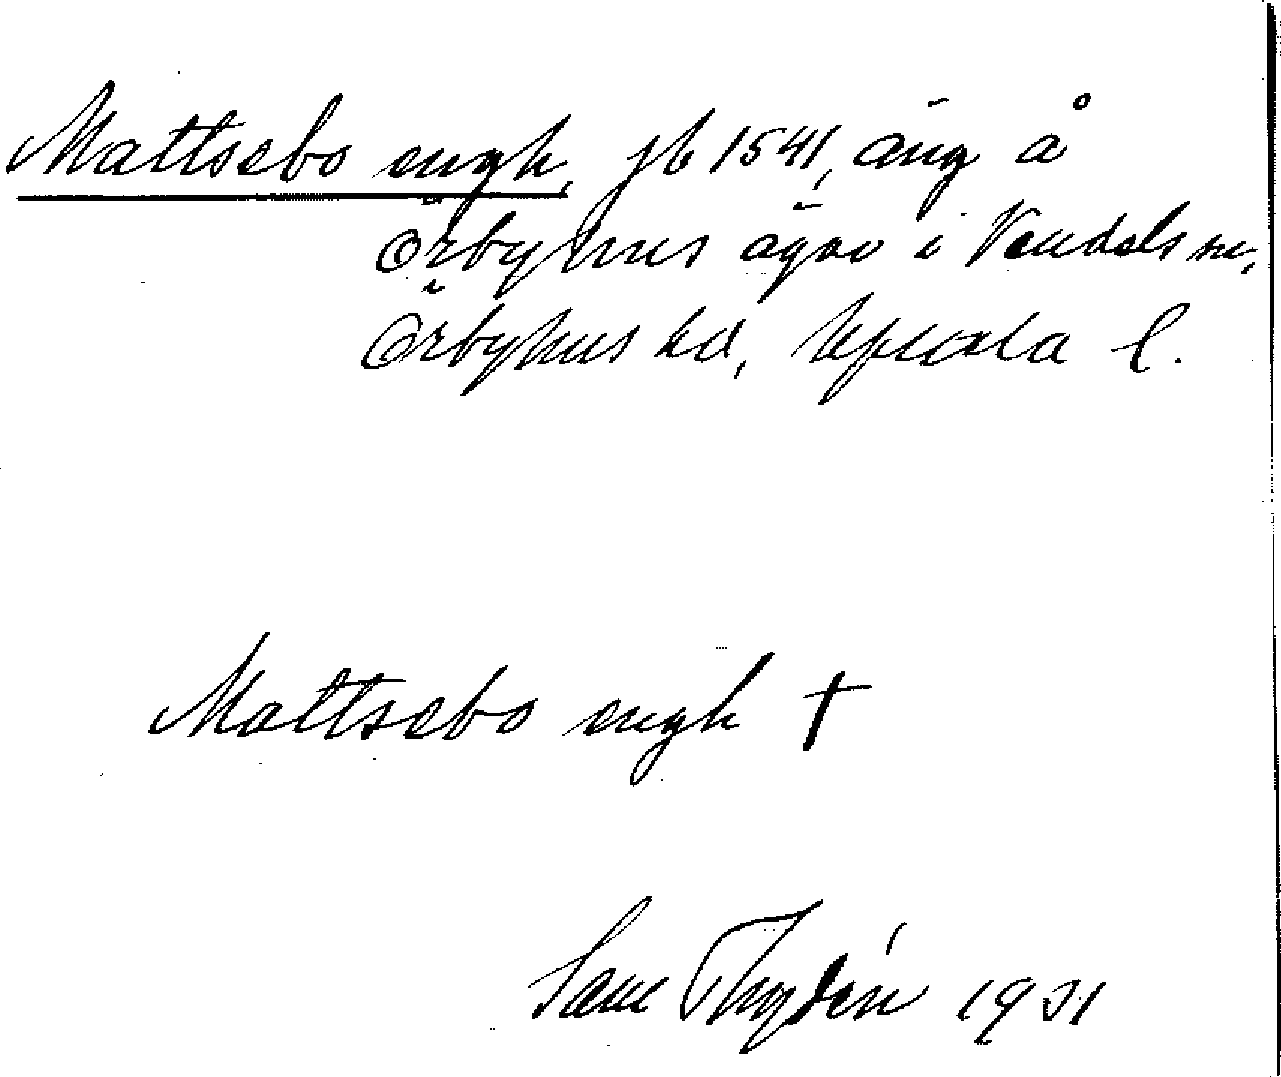 Mattsebo engh, jb 1541, äng å
Örbyhus ägor i Vendels sn,
Örbyhus hd, Upsala l.
Mattsebo engh †
Sam Thydén 1931